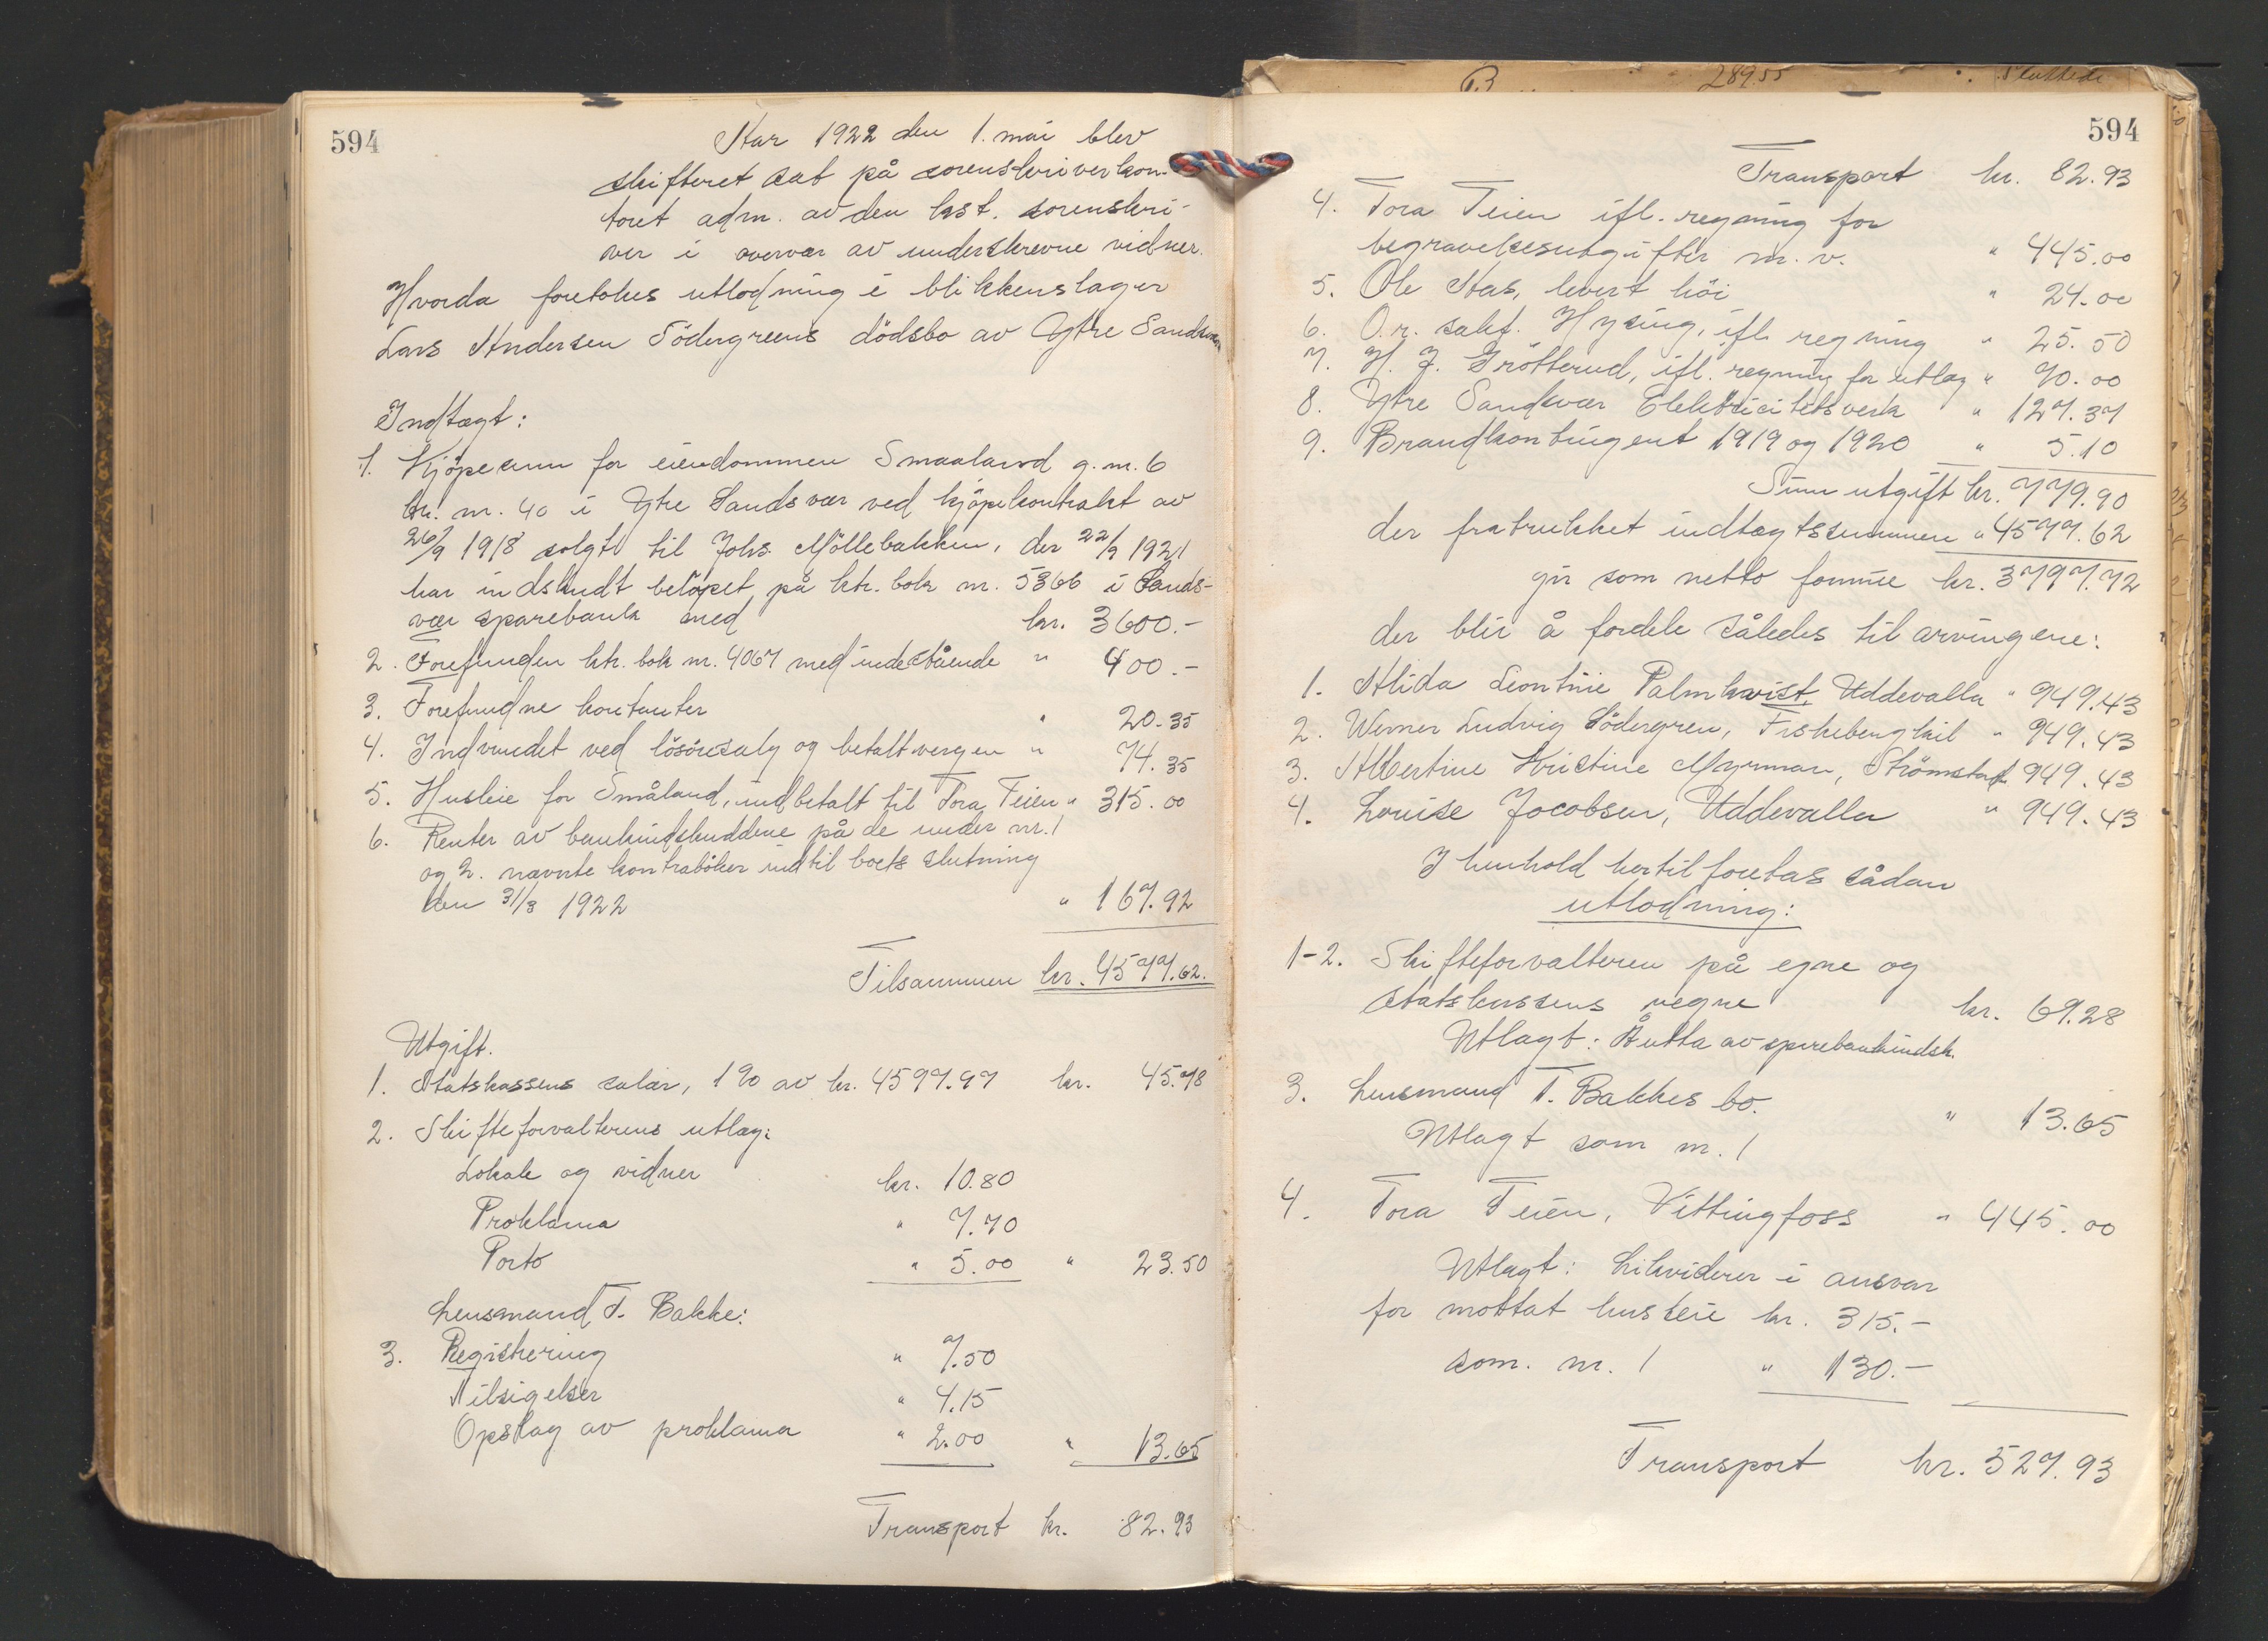 594
Aar 1922 den 1. mai blev
skifteret sat på sorenskriverkon-
toret adm. av den kst. sorenskri-
ver i overvær av underskrevne vidner.
Hvorda foretokes utlodning i blikkenslager
Lars Andersen Södergreens dödsbo av Ytre Sandsvær
Indtægt:
1. Kjöpesum for eiendommen Smaaland g. nr. 6
br. nr. 40 i Ytre Sandsvær ved kjöpekontrakt av
26/9 1918 solgt til Johs. Möllebakken, der 22/9 1921
har indskudt belöpet på ktr. bok nr. 5366 i Sands-
vær sparebank med kr. 3600.-
2. Forefunden ktr. bok nr. 4067 med indestående " 400.-
3. Forefundne kontanter " 20.35
4. Indvundet ved lösöresalg og betalt vergen " 74.35
5. Husleie for Småland, indbetalt til Tora Teien " 315.00
6. Renter av bankindskuddene på de under nr. 1
og 2. nævnte kontraböker indtil boets slutning
den 31/3 1922 " 167.92
Tilsammen kr. 4577.62.
Utgift.
1. Statskassens salær, 1% av kr. 4597.97 kr. 45.78
2. Skifteforvalterens utlæg:
Lokale og vidner kr. 10.80
Proklama " 7.70
Porto " 5.00 " 23.50
Lensmand T. Bakke:
3. Registrering " 7.50
Tilsigelser " 4.15
Opslag av proklama " 2.00 " 13.65
Transport kr. 82.93
B 289.55 Sluttede
594
Transport kr. 82.93
4. Tora Teien ifl. regning for
begravelsesutgifter m. v. " 445.00
5. Ole Aas, levert höi " 24.00
6. O.r. sakf. Hysing, ifl. regning " 25.50
7. H. J. Grötterud, ifl. regning for utlæg " 70.00
8. Ytre Sandsvær Elektricitetsverk " 127.37
9. Brandkontingent 1919 og 1920 " 5.10
Sum utgift kr. 779.90
der fratrukket indtægtssummen " 4577.62
gir som netto formue kr. 3797.72
der blir å fordele således til arvingene:
1. Alida Leontine Palmkvist, Uddevalla " 949.43
2. Werner Ludvig Södergren, Fiskebengkil " 949.43
3. Albertine Kristine Myrman, Strömstad " 949.43
4. Louise Jocobsen, Uddevalla " 949.43
I henhold hertil foretas sådan
utlodning:
1-2. Skifteforvalteren på egne og
statskassens vegne kr. 69.28
Utlagt: Å utta av sparebankindsk.
3. Lensmand T. Bakkes bo. " 13.65
Utlagt som nr. 1
4. Tora Teien, Vittingfoss " 445.00
Utlagt: Likviderer i ansvar
for mottat husleie kr. 315.-
som nr. 1 " 130.-
Transport kr. 527.93